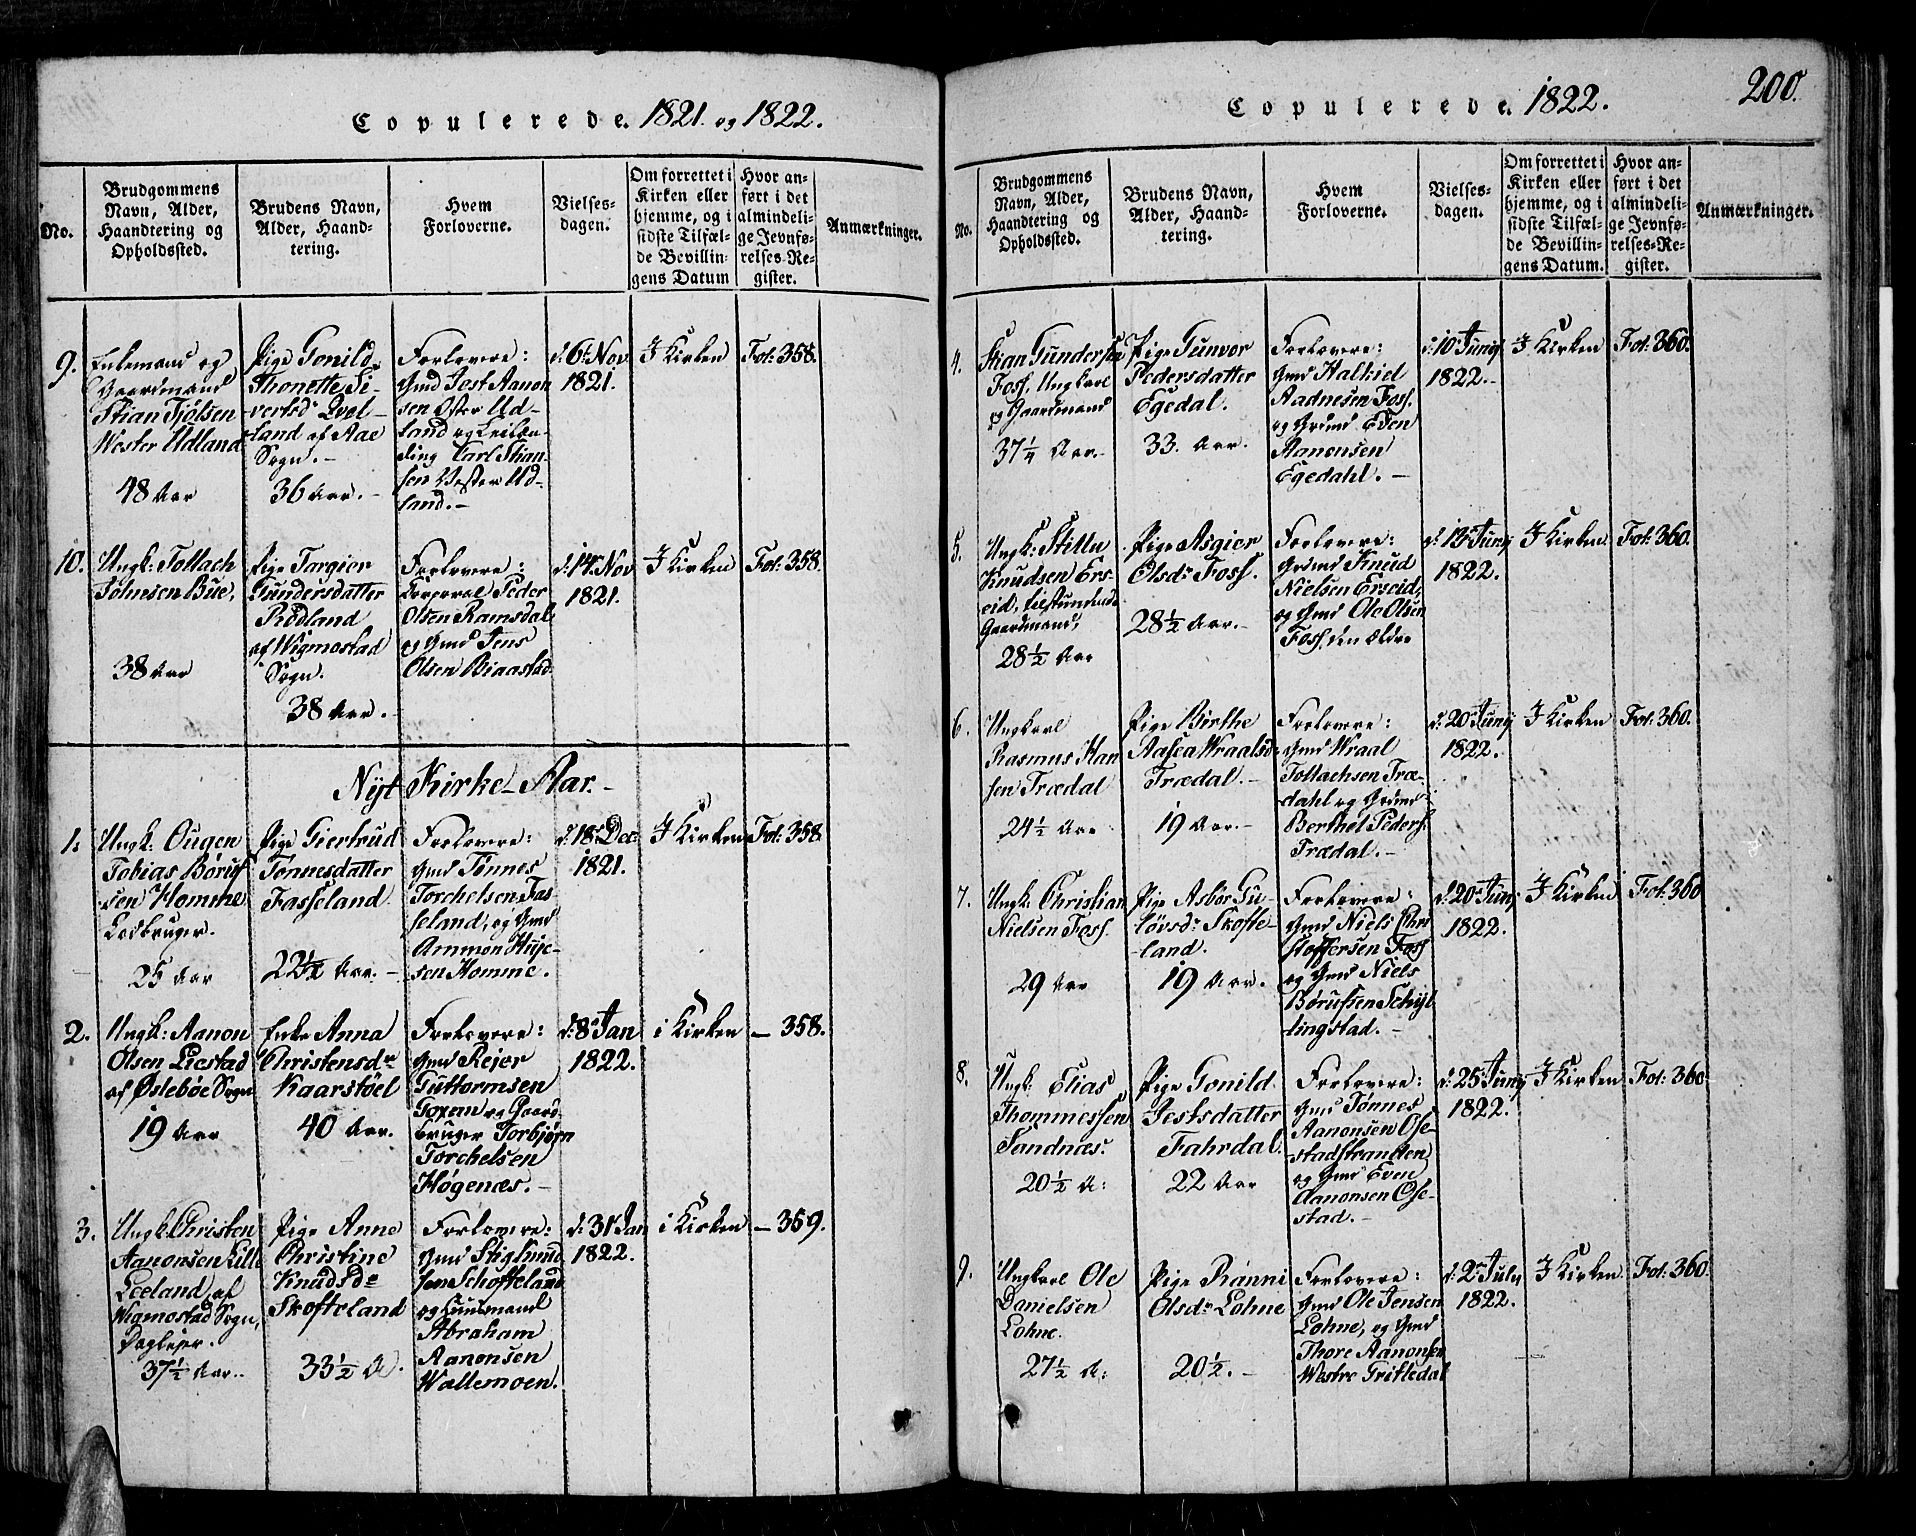 Copulerede. 1821. og 1822.
No.
Brudgommens
Navn, Alder,
Haandtering og
Opholdssted.
Brudens Navn,
Alder, Haand-
tering.
Hvem
Forloverne.
Vielses-
dagen.
Om forrettet i
Kirken eller
hjemme, og i
sidste Tilfæl-
de Bevillin-
gens Datum
Hvor an-
ført i det
almindeli-
ge Jevnfø-
relses-Re-
gister.
Anmærkninger.
9.
Enkemand og
Gaardmand
Stian Tjølsen
Wester Udland
48 Aar
Pige Gonild
Thonette Si-
vertsd Qvel-
land af Aae
Sogn. -
36 Aar. -
Forlovere:
Gmd Jost Aanon
sen Øster Ud-
land og Leilæn-
ding Carl Stian-
sen Vester Ud-
land. -
d: 6t Nov.
1821.
I Kirken
Fol: 358.
10.
Ungk: Tollach
Johnsen Bue,
38 Aar
Pige Torgier
Gundersdatter
Rödland
af Wigmostad
Sogn.
38 Aar. -
Forlovere:
Corporal Peder
Olsen Ramsdal
og Gmd Jens
Olsen Biaastad
d: 14t Nov
1821.
I Kirken
Fol: 358.
Nyt Kirke-Aar. -
1.
Ungk: Ougen
Tobias Børuf
sen Homme
Ledbruger.
25 Aar
Pige Giertrud
Tönnesdatter
Fasseland
22½ Aar. -
Forlovere:
Gmd Tønnes
Torchelsen Fas
seland, og Gmd
Ammon Huje-
sen Homme.
d: 18t Dec:
1821.
I Kirken
Fol: 358
2.
Ungk: Aanon
Olsen Liestad
af Øslebøe Sogn
19 Aar
Enke Anna
Christensdr
Kaarstöel
40 Aar.
Forlovere:
Gmd Rejer
Guttormsen
og Gaard
bruger Torbjørn
Torchelsen
Høgenæs. -
d: 8t Jan
1822.
i Kirken
- 358.
3.
Ungk: Christen
Aanonsen Lille
Leeland, af
Wigmostad Sogn,
Dagleier.
37½ Aar..
Pige Anne
Christine
Knudsdr
Skofteland
33½ A.
Forlovere:
Gmd Stig Knud
sen Schofteland
og Huusmand
Abraham
Aanonsen
Wallemoen.
d: 31t Jan
1822.
i Kirken
- 359.
Copulerede. 1822.
200.
No.
Brudgommens
Navn, Alder,
Haandtering og
Opholdssted.
Brudens Navn,
Alder, Haand-
tering.
Hvem
Forloverne.
Vielses-
dagen.
Om forrettet i
Kirken eller
hjemme, og i
sidste Tilfæl-
de Bevillin-
gens Datum.
Hvor an-
ført i det
almindeli-
ge Jevnfø-
relses-Re-
gister.
Anmærkninger.
4.
Stian Gundersen
Foss. Ungkarl
og Gaardmand
37¼ Aar. -
Pige Gunvor
Pedersdatter
Egedal.
33. Aar.
Forlovere:
Gmd Halkiel
Aadnesen Foss.
og Grmd Even
Aanonsen
Egedahl. -
d: 10t Junij
1822. -
I Kirken
Fol: 360.
5.
Ungk: Stillu
Knudsen Ers-
eid, tilstundende
Gaardmand,
28½ Aar
Pige Asgier
Olsdr Foss.
28½ Aar. -
Forlovere:
Grmd Knud
Nielsen Erseid,
og Gmd Ole Olsen
Foss, den Ældre
d: 13t Junij
1822.
I Kirken
Fol: 360.
6.
Ungkarl
Rasmus Han
sen Trædal
24½ Aar
Pige Birthe
Aasea Wraalsd
Trædal. -
19 Aar. -
Forlovere:
Gmd Wraal
Tollachsen Træ-
dahl og Grmd
Berthel Peders.
Trædal. -
d: 20t Junij
1822.
I Kirken
Fol: 360.
7.
Ungk: Christian
Nielsen Foss.
29 Aar
Pige Asbor Gu-
lövsdr Skofte-
land.
19 Aar.
Forlovere:
Gmd Niels Chri
stoffersen Foss
og Gmd Niels
Børussen Schyl
lingstad. -
d: 20t Junij
1822.
I Kirken
Fol: 360
8.
Ungk: Elias
Thommessen
Sandnæs.
20½ A:
Pige Gonild
Jestsdatter
Fahrdal.
22 Aar
Forlovere:
Gmd Tønnes
Aanonsen Ose-
stadstranden
og Gmd Even
Aanonsen Ose-
stad. -
d: 25t Junij
1822.
I Kirken
Fol: 360.
9.
Ungkarl Ole
Danielsen
Lohne.
27½ A:
Pige Ránni
Olsdr Lohne
20½. -
Forlovere:
Gmd Ole Jensen
Lohne, og Gmd
Thore Aanonsen
Westre Gritledal
d: 2t July
1822.
I Kirken
Fol: 360.